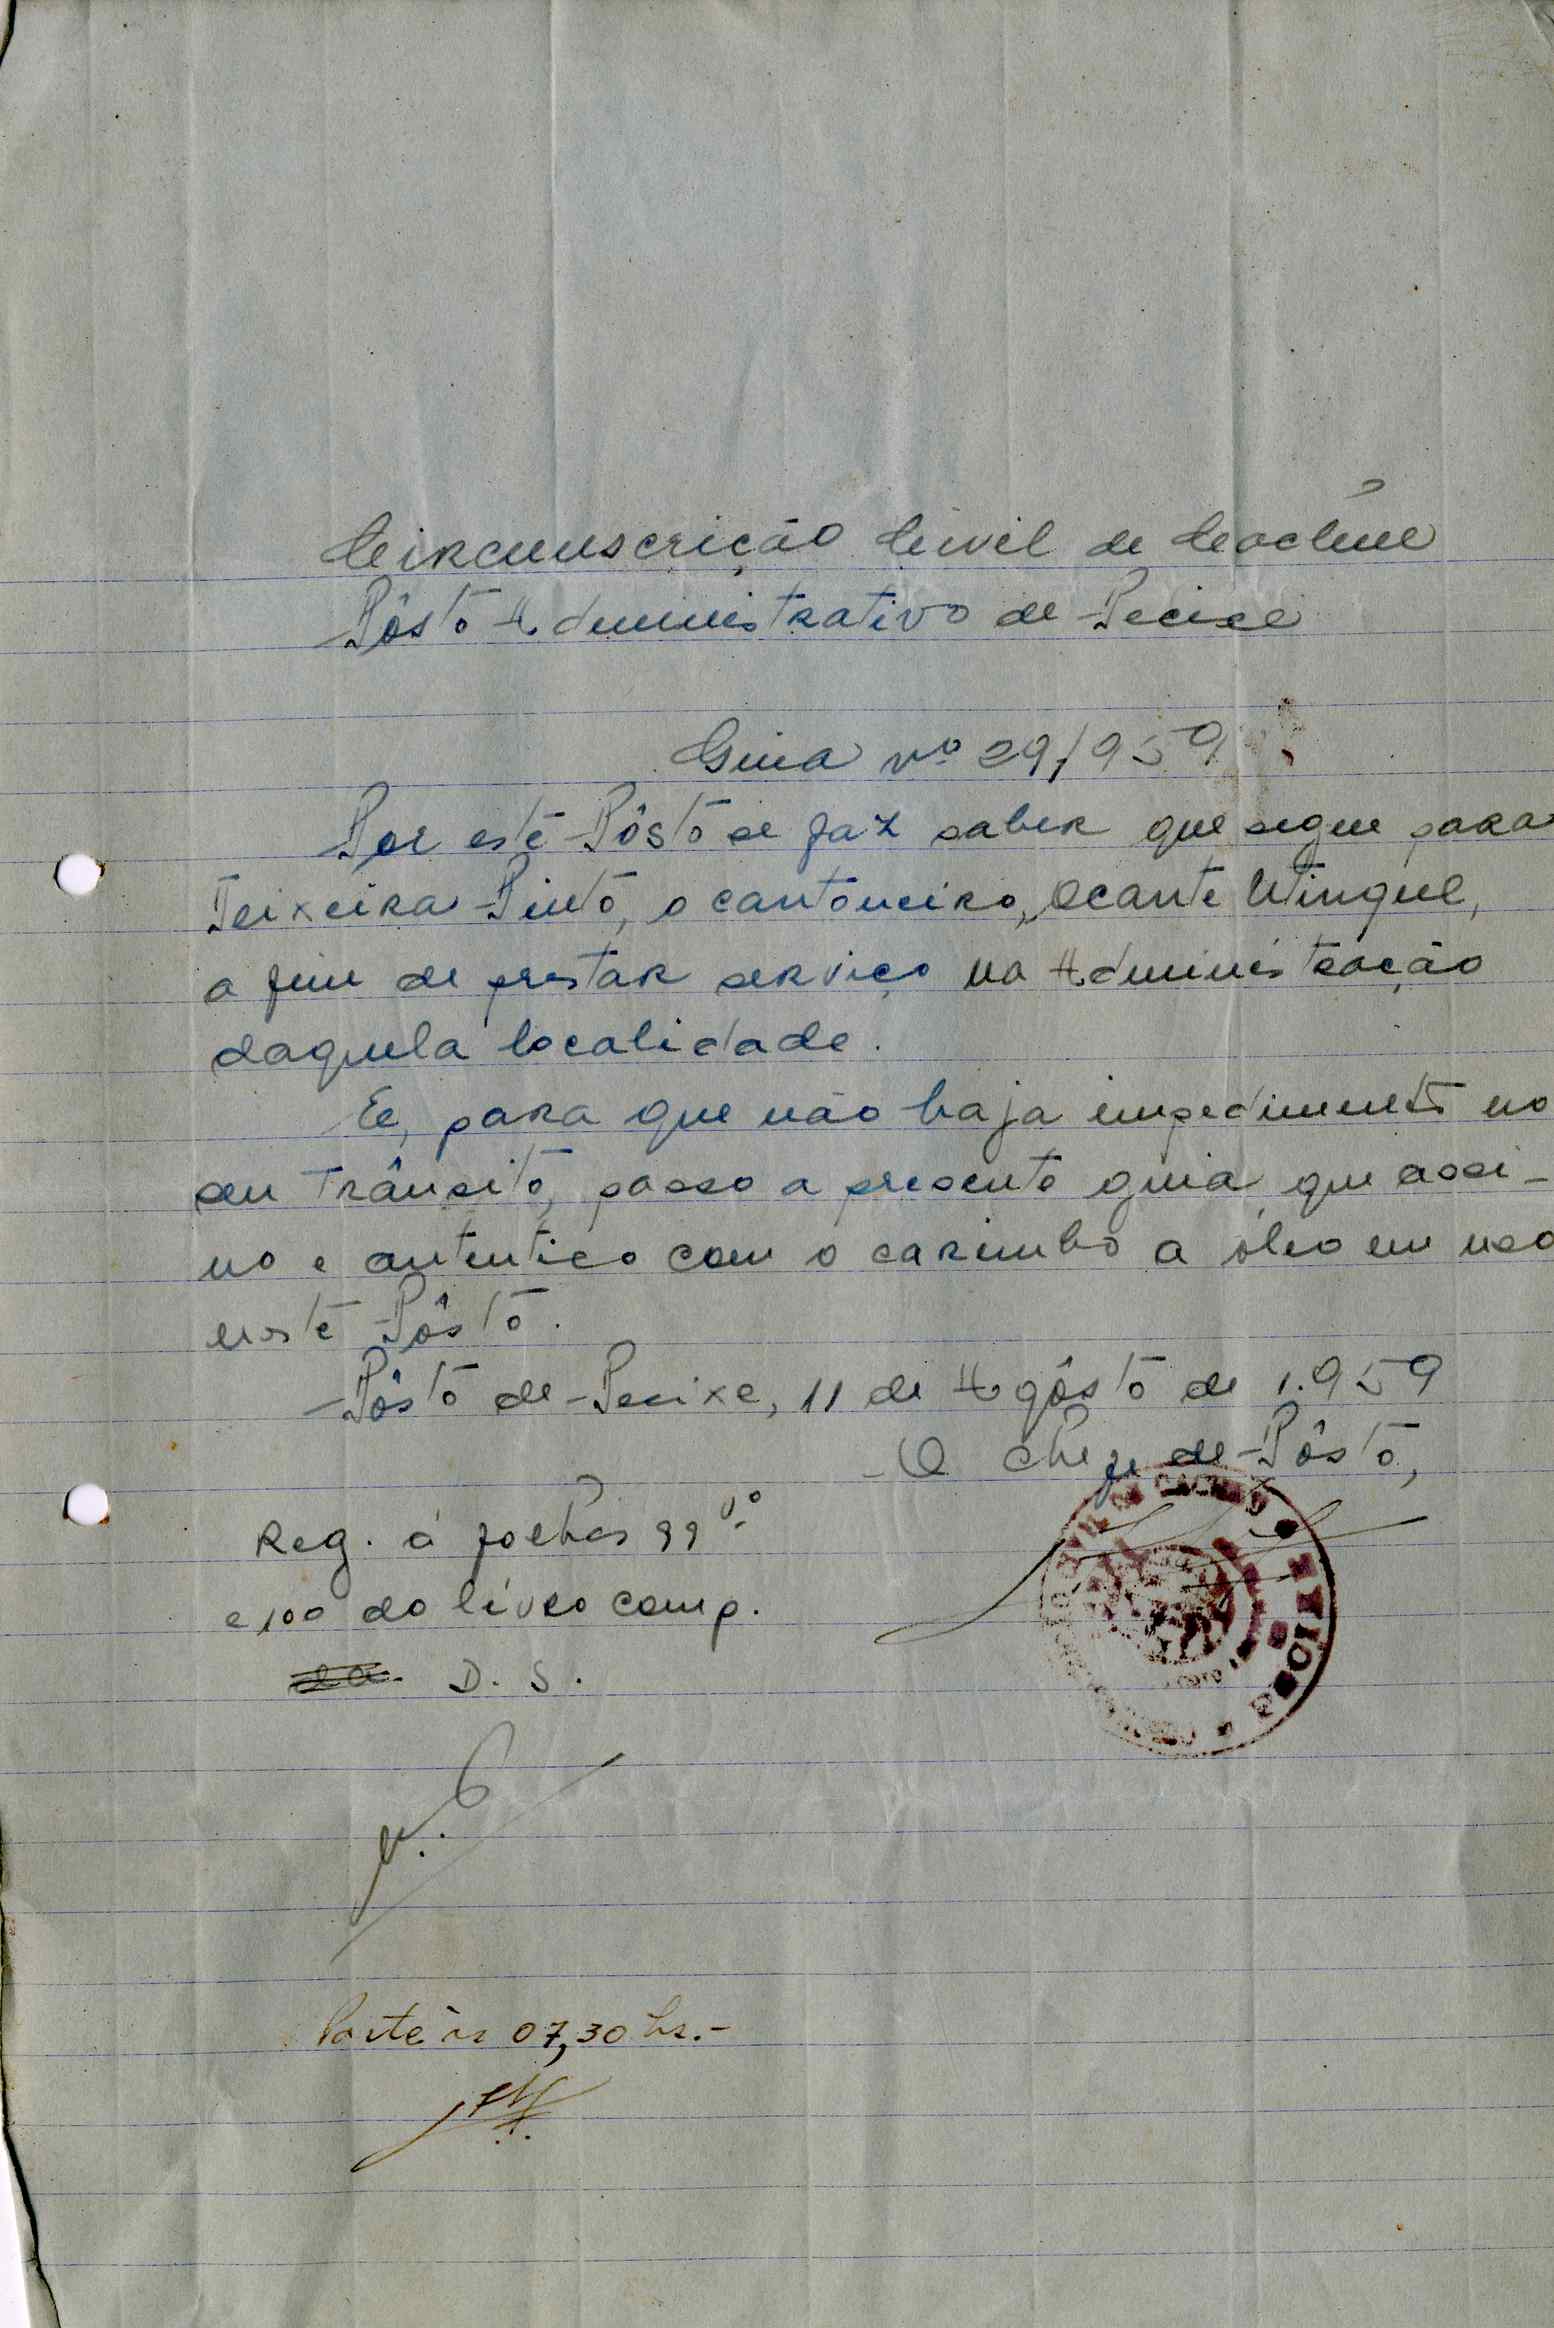 Circunscrição Civil de Cacheu
Pôsto Administrativo de Pecixe
Guia nº 29/959
Por este Pôsto se faz saber que segue para
Teixeira Pinto, o cantoneiro, Ocante Utingue,
a fim de prestar serviço na Administração
daquela localidade.
E, para que não haja impedimento no
seu trânsito, passo a presente guia que assi-
no e autentico com o carimbo a óleo em uso
neste Pôsto.
Pôsto de Pecixe, 11 de Agôsto de 1.959
O Chefe de Pôsto,
Reg. a folhas 99 vº
e 100 do livro comp.
D. S.
Parte às 07,30 hs.-